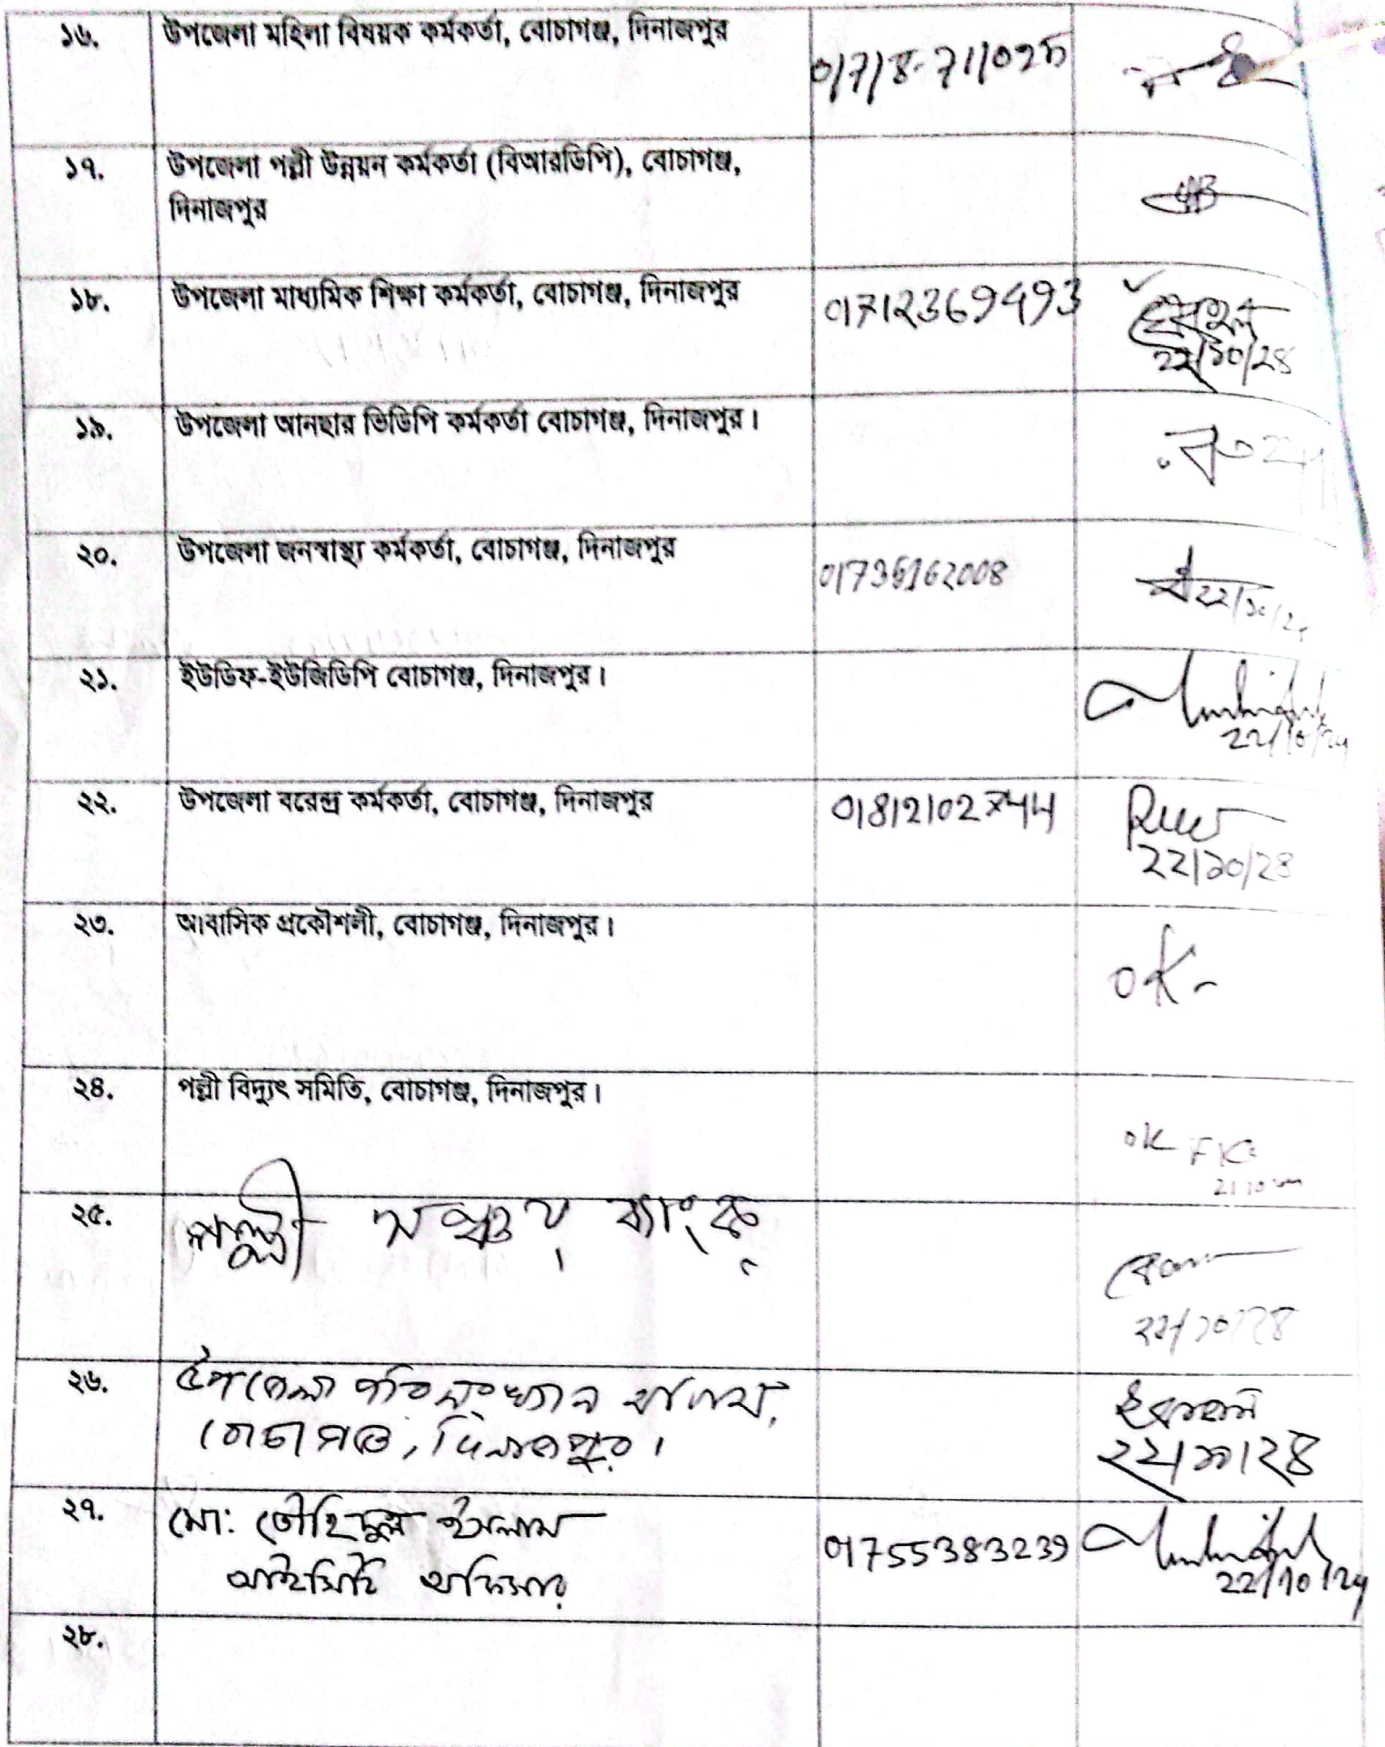 ১৬. উপজেলা মহিলা বিষয়ক কর্মকর্তা, বোচাগঞ্জ, দিনাজপুর
১৭. উপজেলা পল্লী উন্নয়ন কর্মকর্তা (বিআরডিপি), বোচাগঞ্জ,
দিনাজপুর
১৮. উপজেলা মাধ্যমিক শিক্ষা কর্মকর্তা, বোচাগঞ্জ, দিনাজপুর 01712369493
২২/১০/২৪
১৯. উপজেলা আনছার ভিডিপি কর্মকর্তা বোচাগঞ্জ, দিনাজপুর।
২০. উপজেলা জনস্বাস্থ্য কর্মকর্তা, বোচাগঞ্জ, দিনাজপুর
২১. ইউডিফ-ইউজিডিপি বোচাগঞ্জ, দিনাজপুর।
22/10/24
২২. উপজেলা বরেন্দ্র কর্মকর্তা, বোচাগঞ্জ, দিনাজপুর 01812102744
২২/১০/২৪
২৩. আবাসিক প্রকৌশলী, বোচাগঞ্জ, দিনাজপুর।
OK
২৪. পল্লী বিদ্যুৎ সমিতি, বোচাগঞ্জ, দিনাজপুর।
OK
২৫. পল্লী সঞ্চয় ব্যাংক
২২/১০/২৪
২৬. উপজেলা পরিসংখ্যান অফিস,
বোচাগঞ্জ, দিনাজপুর।
২২/১০/২৪
২৭. মো: তৌহিদুল ইসলাম 01755383239
আইসিটি অফিসার
22/10/24
২৮.